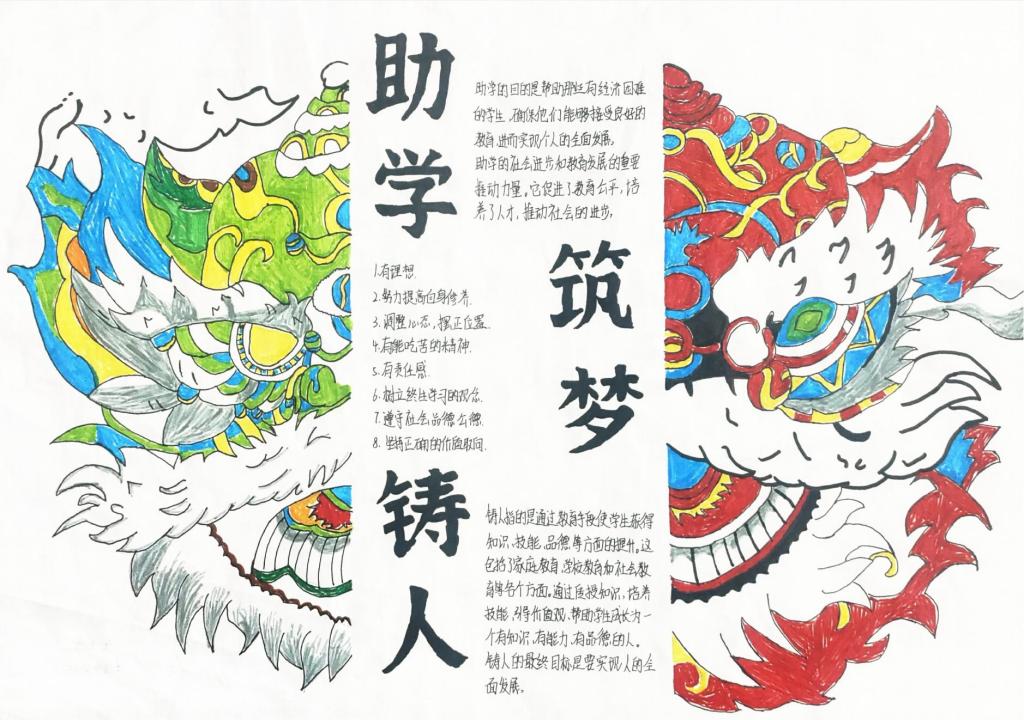 助学
筑梦
铸人
助学的目的是帮助那些有经济困难
的学生,确保他们能够接受良好的
教育,进而实现个人的全面发展。
助学的社会进步和教育发展的重要
推动力量。它促进了教育公平,培
养了人才,推动社会的进步。
1.有理想.
2.努力提高自身修养.
3.调整心态,摆正位置.
4.有能吃苦的精神.
5.有责任感.
6.树立终生学习的观念.
7.遵守社会品德公德.
8.坚持正确的价值取向.
铸人指的是通过教育手段使学生获得
知识、技能、品德等方面的提升。这
包括了家庭教育、学校教育和社会教
育等各个方面。通过传授知识,培养
技能,引导价值观,帮助学生成长为一
个有知识、有能力、有品德的人。
铸人的最终目标是要实现人的全
面发展。